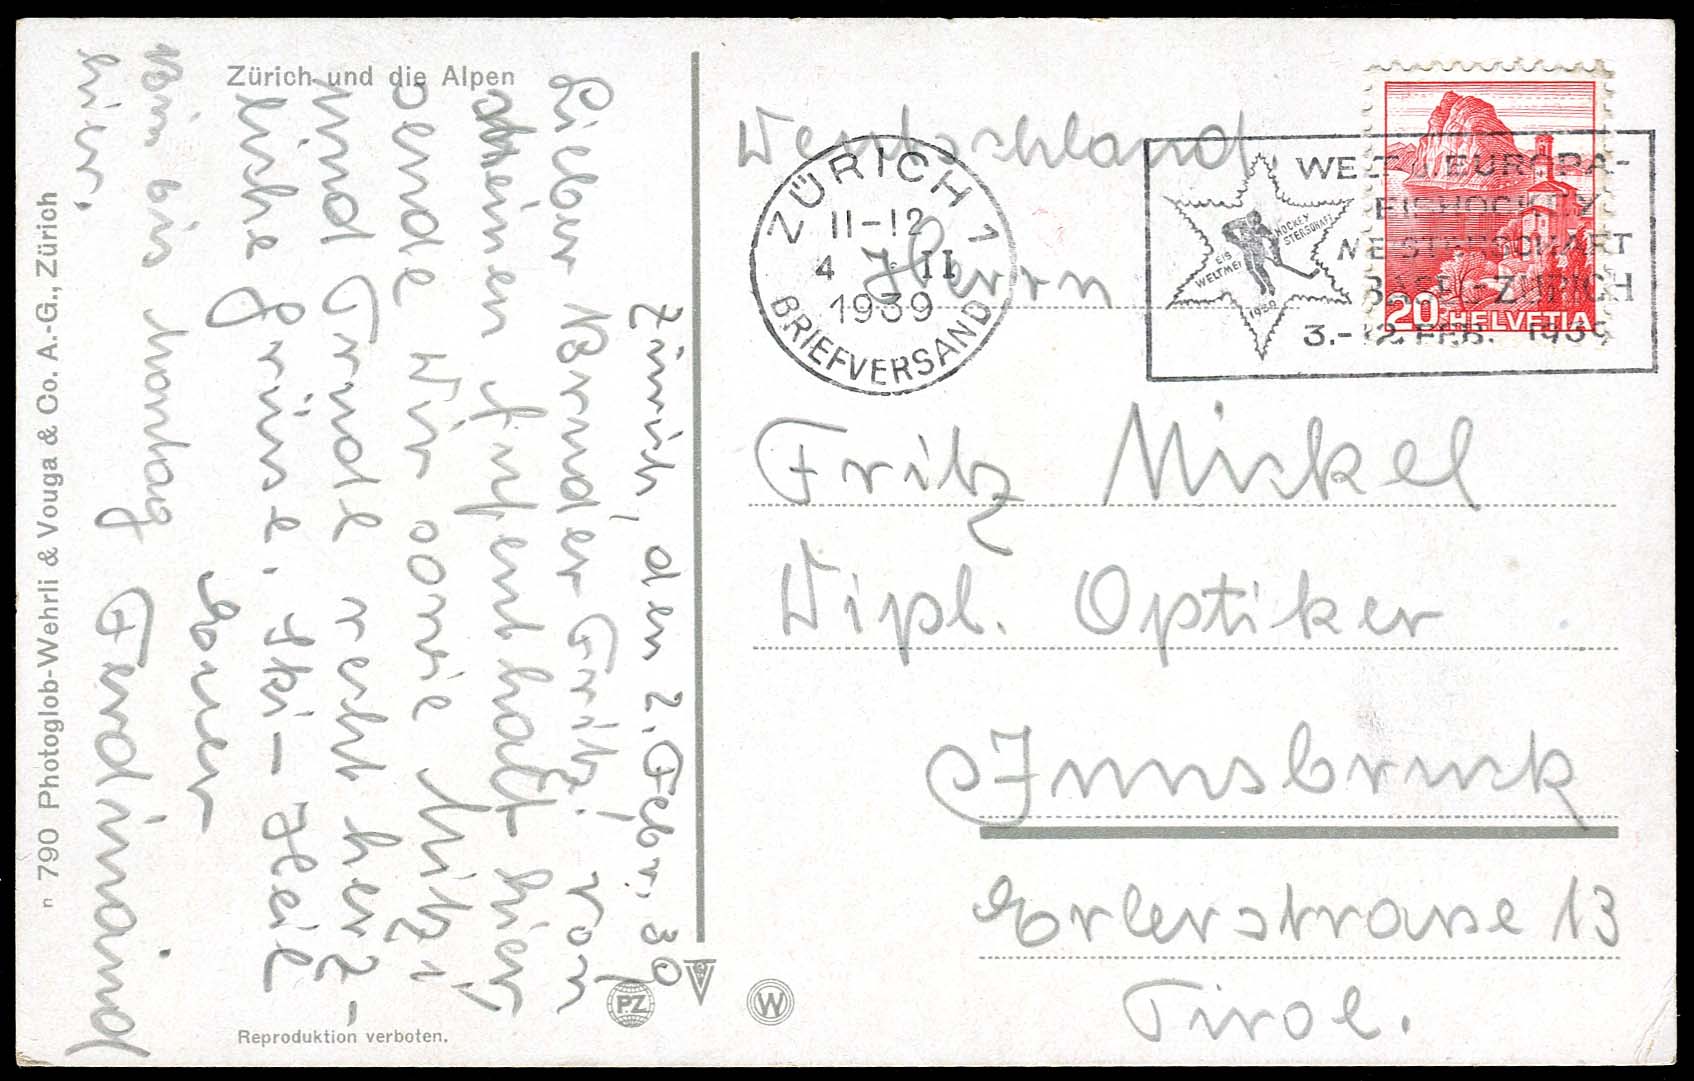 Zürich und die Alpen
Zürich, den 2. Febr. 39
Lieber Bruder Fritz! Von
meinen Aufenthalt hier
sende Dir sowie Mitzi
und Trudl recht herz-
liche Grüsse. Ski-Heil
Euer
Ferdinand
Bin bis Montag
hier.
n 790 Photoglob-Wehrli & Vouga & Co. A.-G., Zürich
Reproduktion verboten.
PZ
W
Deutschland
Herrn
Fritz Nickel
Dipl. Optiker
Innsbruck
Erlerstrasse 13
Tirol.
ZÜRICH 1
11-12
4 II
1939
BRIEFVERSAND
EIS HOCKEY
WELTMEISTERSCHAFT
1939
WELT- EUROPA-
EISHOCKEY
MEISTERSCHAFT
BASEL-ZÜRICH
3.-12. FEB. 1939
20 HELVETIA